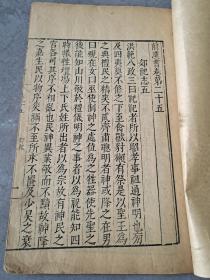 前漢書卷第二十五
郊祀志五
洪範八政三曰祀祀者所以昭孝事祖通神明也旁
及四夷莫不修之下至禽獸豺獺有祭是以聖王為
之典禮民之精爽不貳齊肅聰明者神或降之在男
曰覡在女曰巫使制神之處位為之牲器使先聖之
後能知山川敬於禮儀明神之事者以為祝能知四
時犧牲壇場上下氏姓所出者以為宗故有神民之
官各司其序不相亂也民神異業敬而不黷故神降
之嘉生民以物序災禍不至所求不匱及少昊之衰